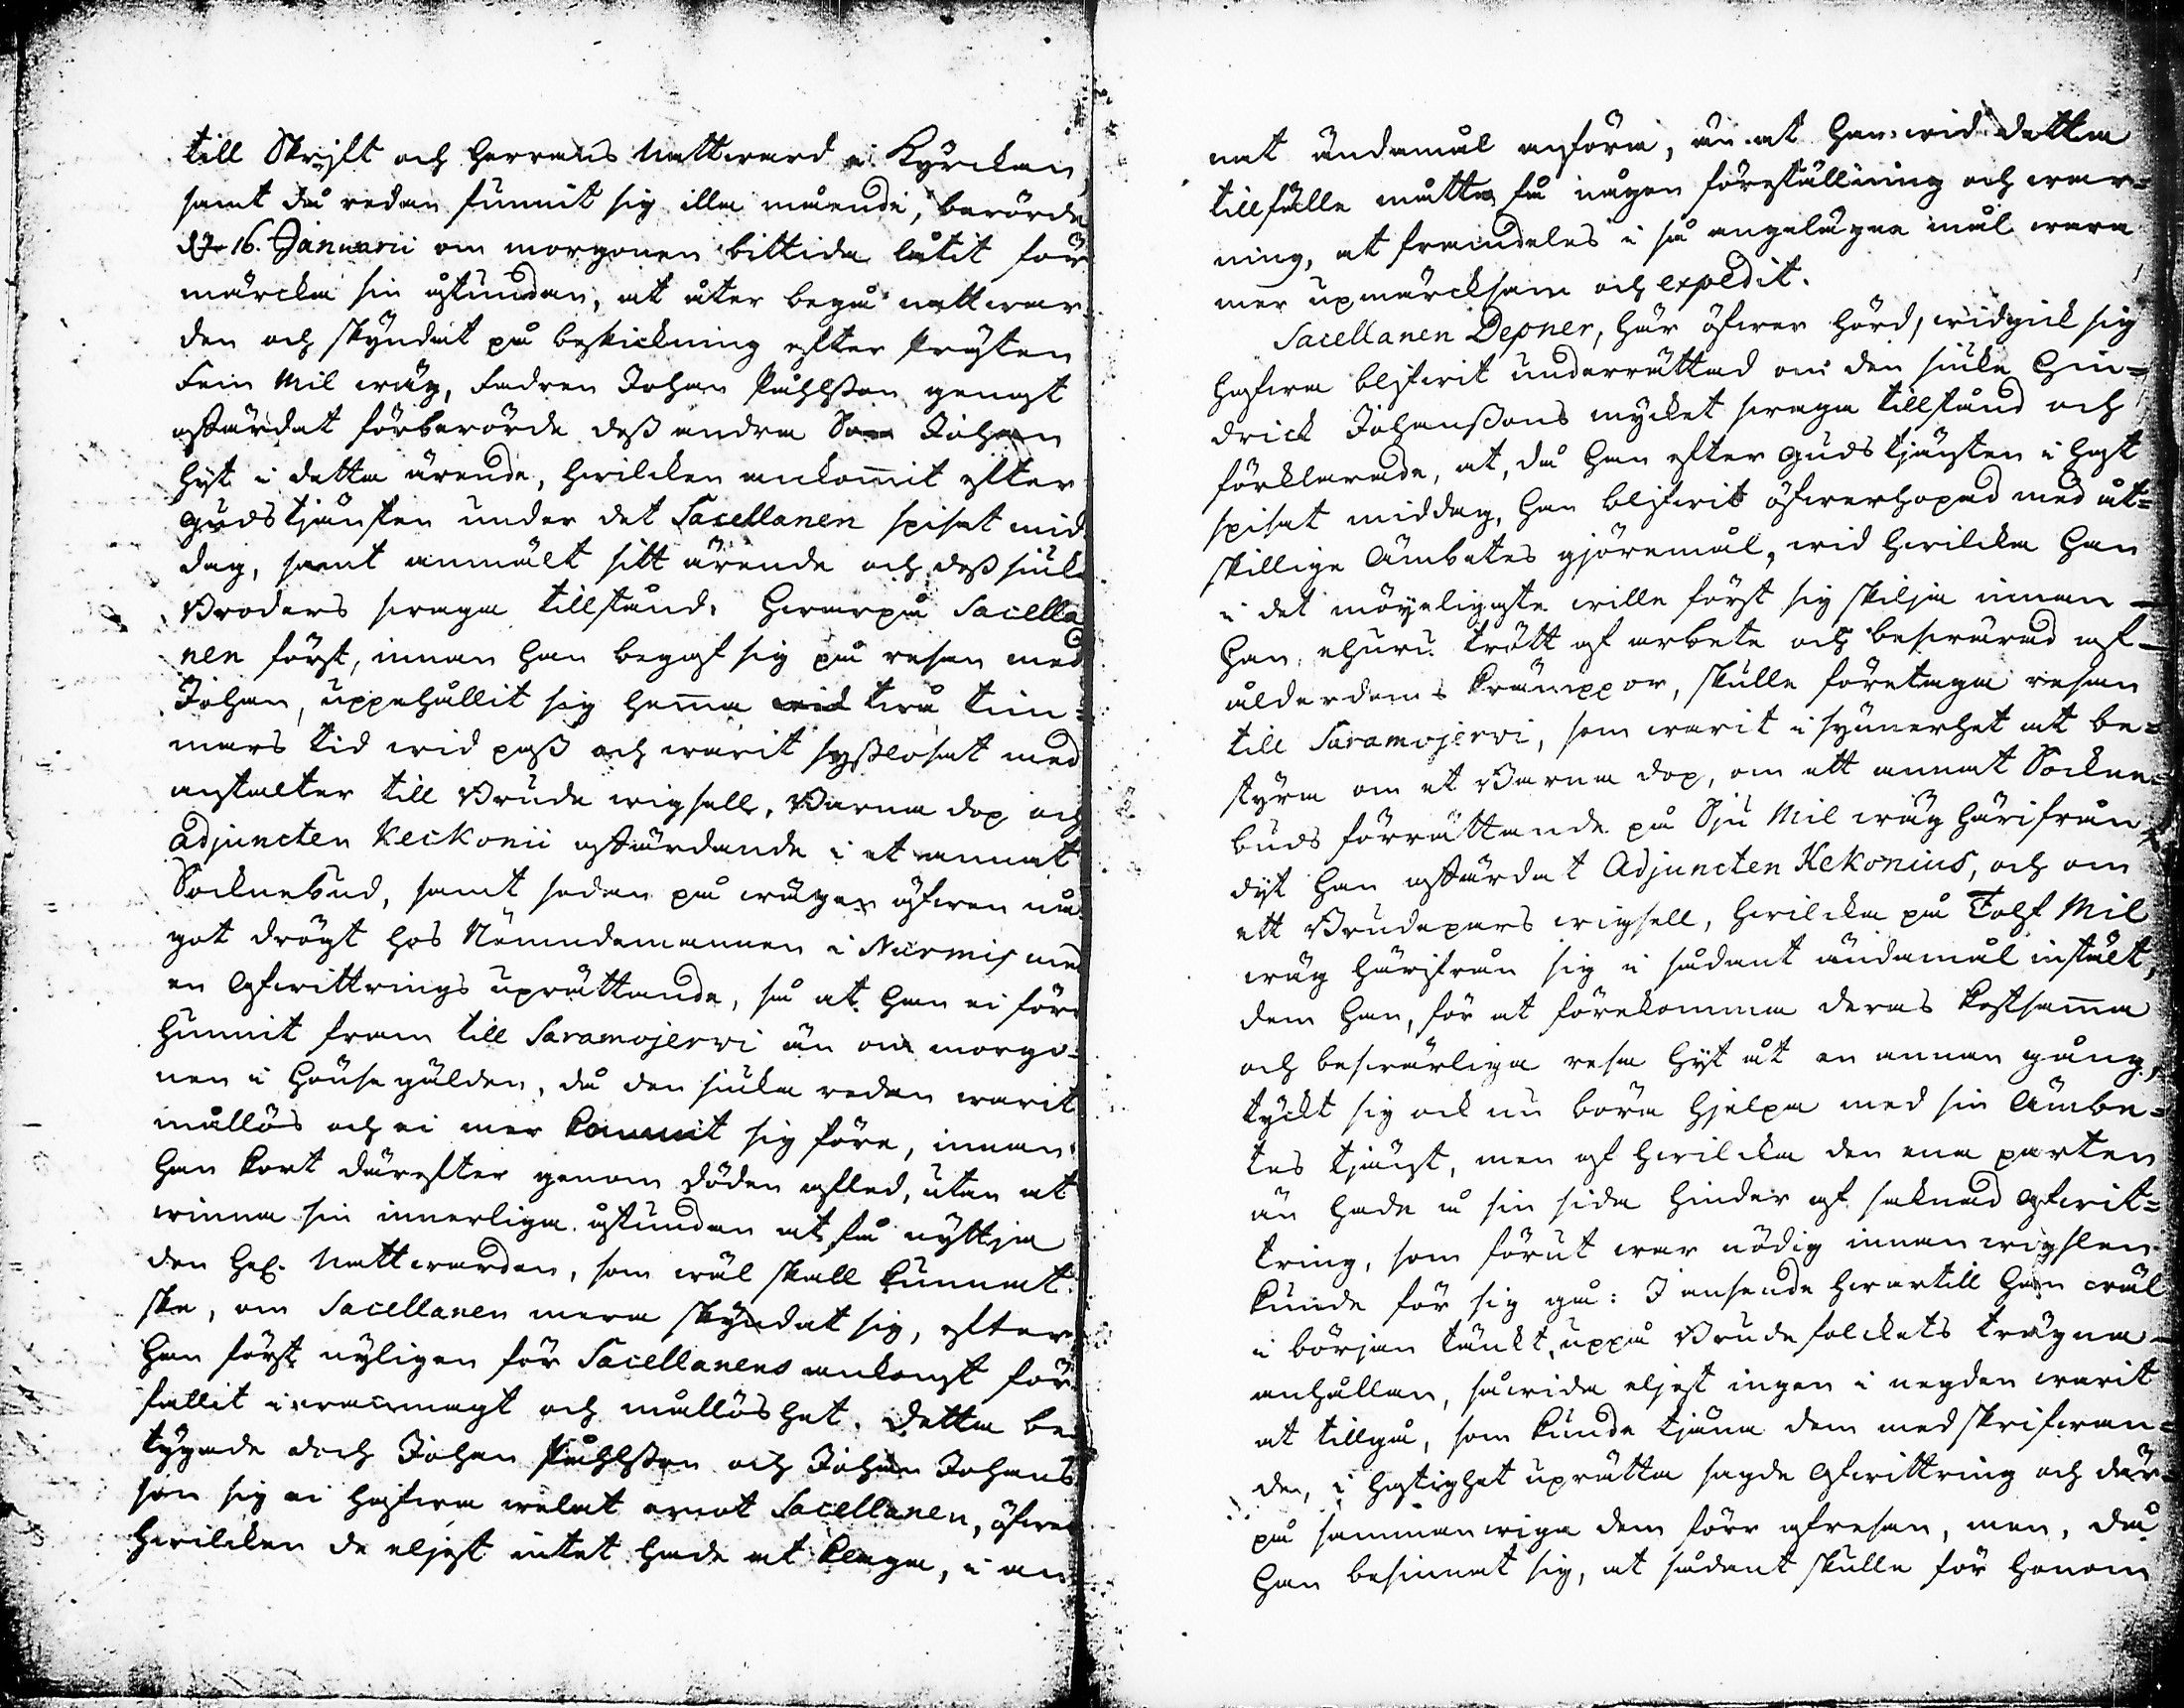 till Skrift och Herrans Nattward i Kyrckan,
samt då redan funnit sig illa måendе, berörde
d. 16. Januarii om morgonen bittida låtit för
märcka sin åstundan, at åter begå nattwar
den och skyndat på beskickning efter Prästen
Fem Mil wäg, Fadren Johan Påhlsson genast
afsärdat förberörde dess andra Son Johan
hijt i detta ärende, hwilcken ankommit efter
Gudstjänsten under det Sacellanen spisat mid
dag, samt anmält sitt ärende och dess siuke
Broders swaga tillstånd. Hwarpå Sacella
nen först, innan han begaf sig på resan med
Johan, uppehållit sig hemma twå tim=
mars tid wid pass och warit sysslosat med
anstalter till Brude wigsell, Barna dop och
Adjuncten Keckonii afsärdande i et annat
Socknebud, samt sedan på wägen äfwen nå
got drögt hos Nämndemannen i Nurmis med
en Afwittrings uprättande, så at han ei förr
hunnit fram till Saramojerwi än om morgo=
nen i Hönse gälden, då den siuka redan warit
mållös och ei mer kunnat sig före, innan
han kort därefter genom döden afled, utan at
winna sin innerliga åstundan at få nyttja
den Hel. Nattwarden, som wäl skall kunnat
ske, om Sacellanen mera skyndat sig, efter
han först nyligen för Sacellanens ankomst för
fallit i wanmagt och mållöshet. Detta be
tygade doch Johan Påhlsson och Johan Johans
son sig ei hafwa welat emot Sacellanen, öfwer
hwilcken de eljest intet hade at klaga, i an
nat ändamål anföra, än at han wid detta
tillfälle måtte få någon föreställning och war=
ning, at framdeles i så angelägna mål wara
mer upmärcksam och expedit.
Sacellanen Depner, här öfwer hörd, widgick sig
hafwa blifwit underrättad om den siuke Hin=
drick Johanssons mycket swaga tillstånd och
förklarade, at, då han efter Gudstjänsten i hast
spisat middag, han blifwit öfwerhopad med åt=
skillige Ämbetes gjöremål, wid hwilcka han
i det möyeligaste wille först sig skilja innan
han, ehuru trött af arbete och beswärad af
ålderdoms krämppor, skulle företaga resan
till Saramojerwi, som warit i synnerhet at be=
styra om et Barna dop, om ett annat Sockne=
buds förrättande på Sju Mil wäg härifrån
dijt han afsärdat Adjuncten Kekonius, och om
ett Brudepars wigsell, hwilcka på Tolf Mil
wäg härifrån sig i sådant ändamål instält,
dem han, för at förekomma deras kostsamma
och beswärliga resa hijt åt en annan gång,
tyckt sig ock nu böra hjelpa med sin Ämbe=
tes tjänst, men af hwilcka den ena parten
än hade å sin sida hinder af saknad afwit=
tring, som förut war nödig innan wigslen
kunde för sig gå: I anseende hwartill han wäl
i början tänkt, uppå Brudefolckets trägna
anhållan, såwida eljest ingen i negden warit
at tillgå, som kunde tjäna dem med skrifwan=
de, i hastighet uprätta sagde afwittring och där=
på sammanwiga dem förr afresan, men, då
han besinnat sig, at sådant skulle för honom